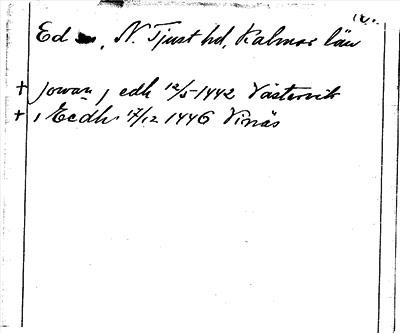 Ed , N. Tjust hd, Kalmar län
+ jowan j edh 12/5-1442 Västervik
+ i Eedh 17/12 1446 Vinäs